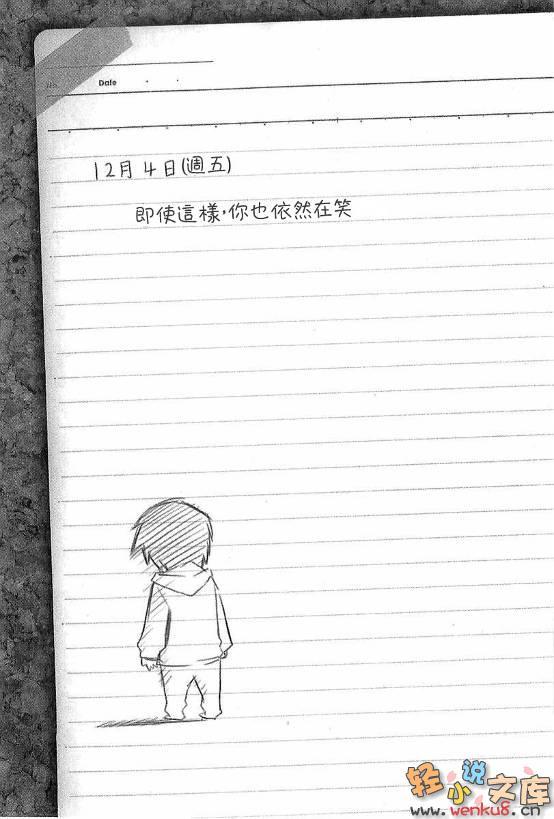 Date
12月4日(週五)
即使這樣,你也依然在笑
轻小说文库
www.wenku8.cn